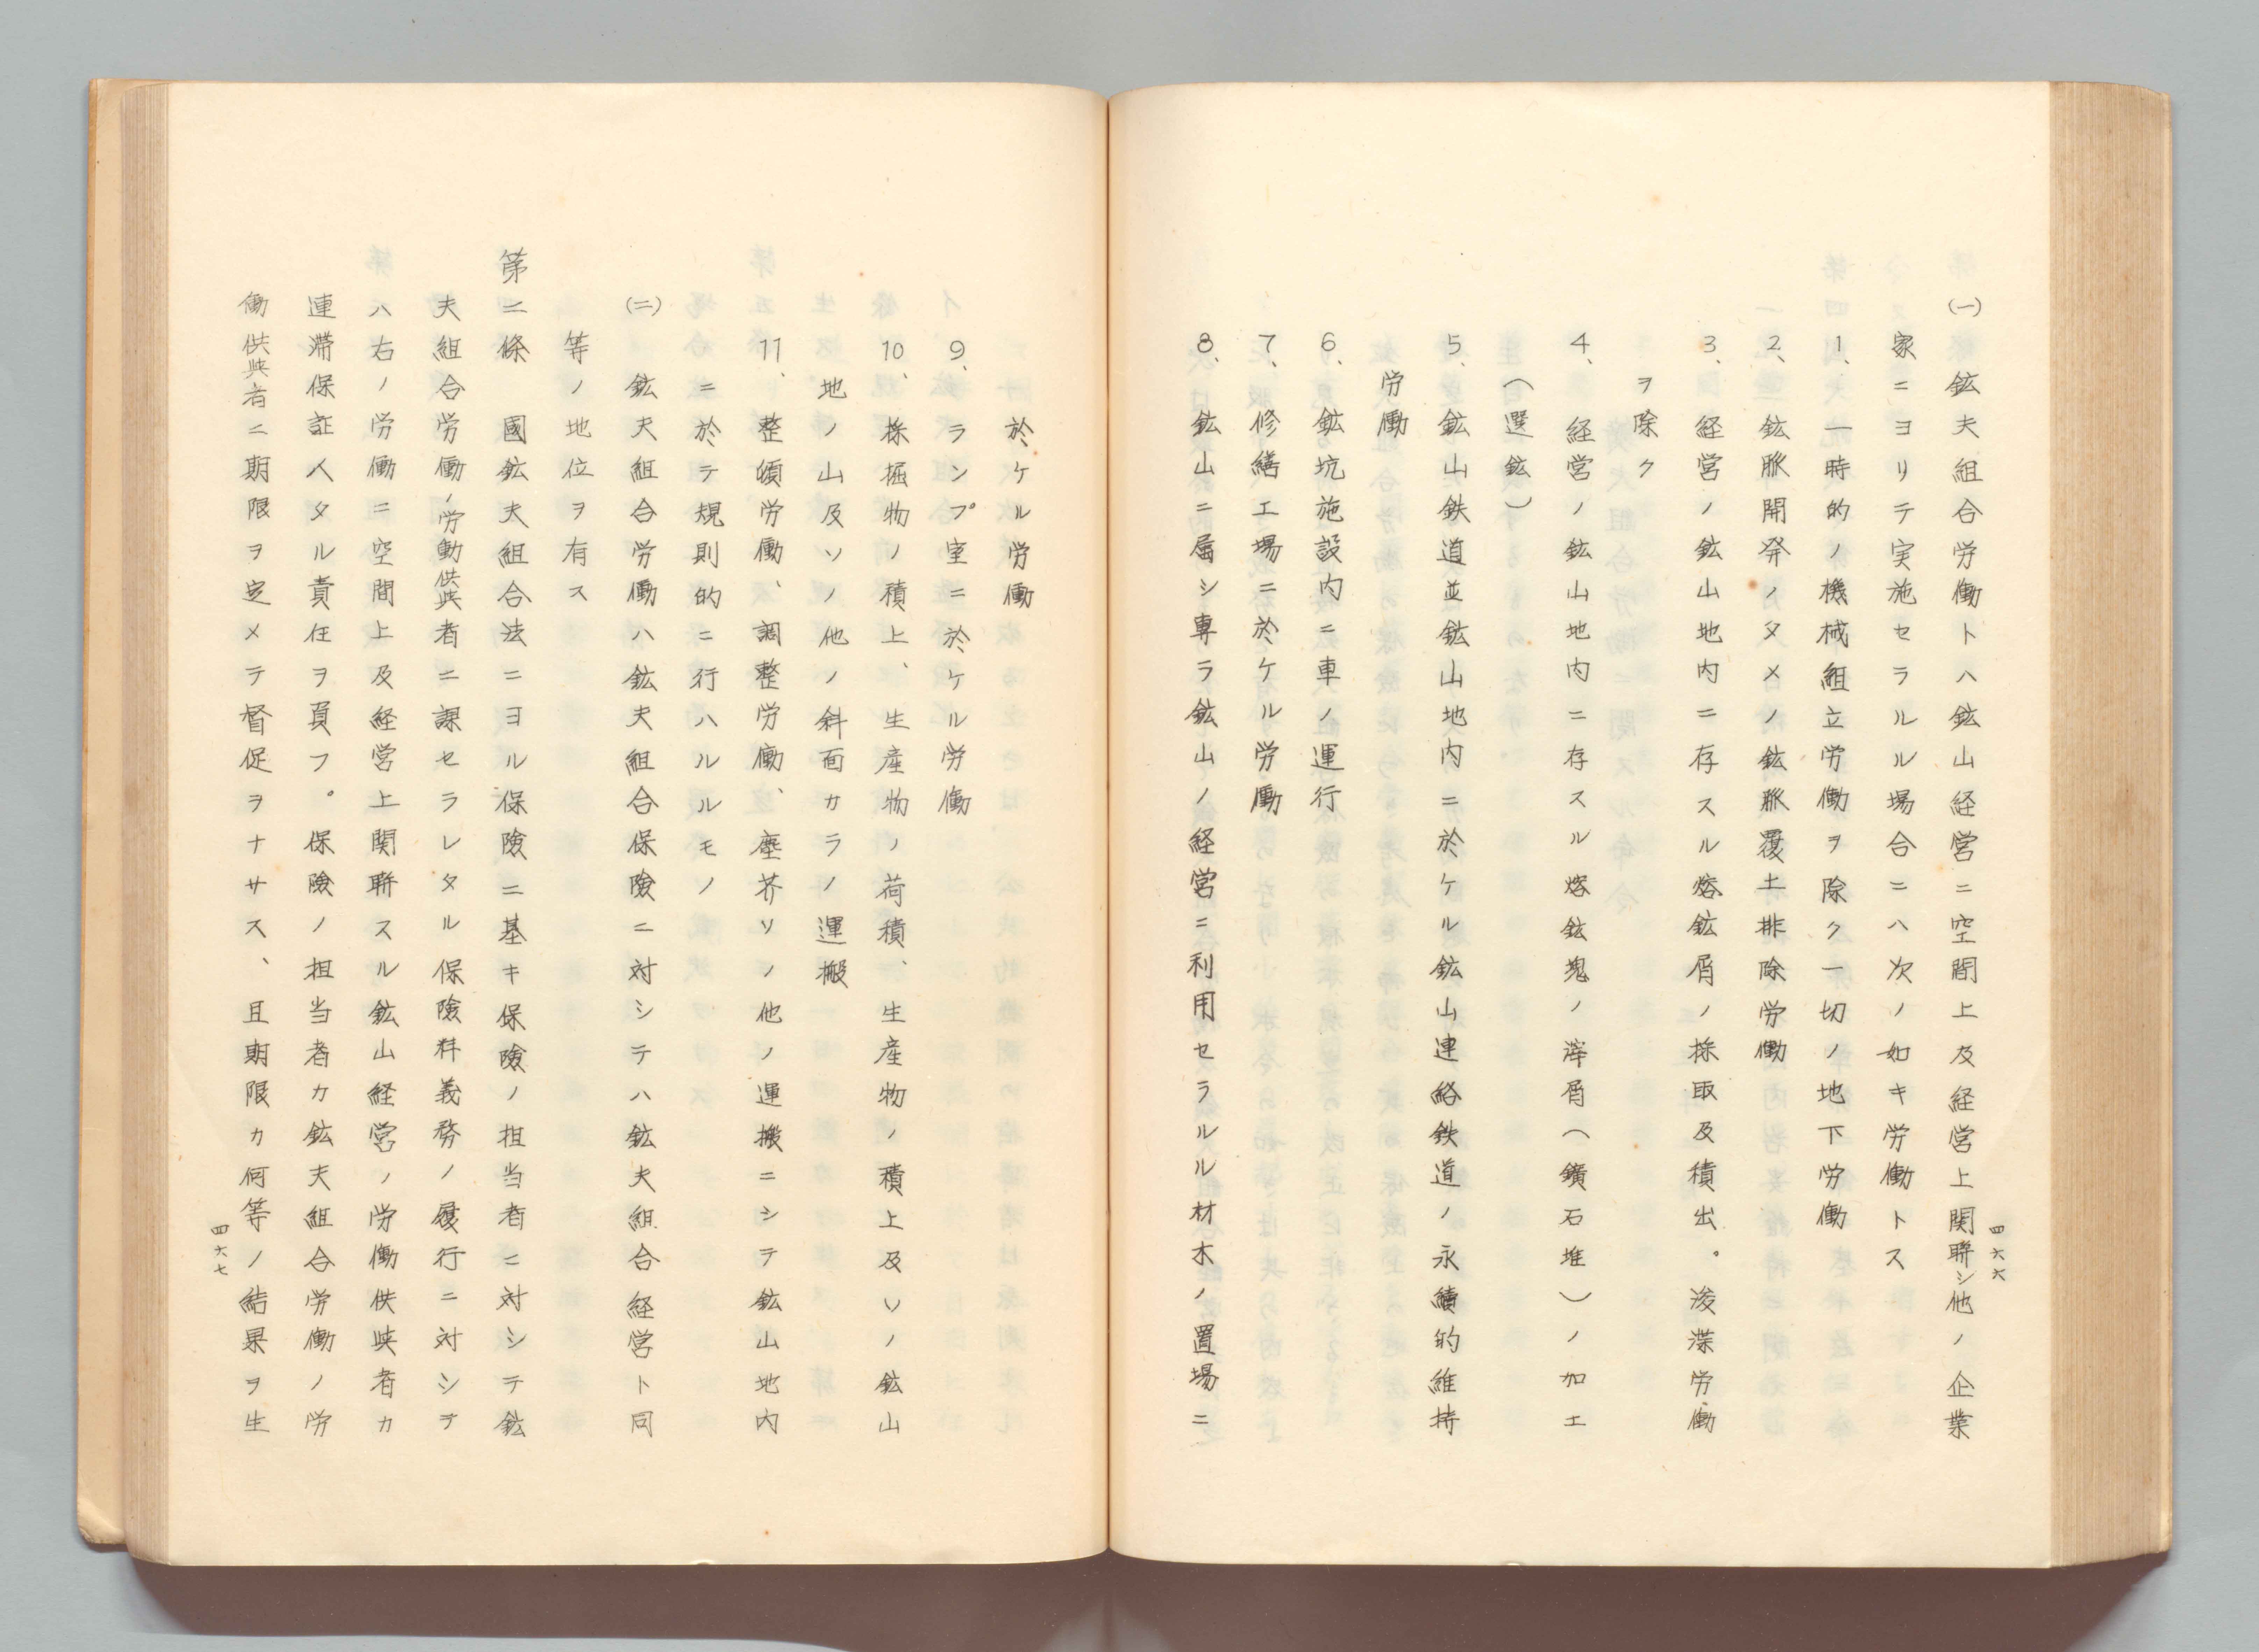 四六六
(一) 鉱夫組合労働トハ鉱山経営ニ空間上及経営上関聯シ他ノ企業
家ニヨリテ実施セラルル場合ニハ次ノ如キ労働トス
1、一時的ノ機械組立労働ヲ除ク一切ノ地下労働
2、鉱脈開発ノタメノ鉱脈覆土排除労働
3、経営ノ鉱山地内ニ存スル熔鉱屑ノ採取及積出。浚渫労働
ヲ除ク
4、経営ノ鉱山地内ニ存スル熔鉱塊ノ滓屑(鑛石堆)ノ加工
(選鉱)
5、鉱山鉄道並鉱山地内ニ於ケル鉱山連絡鉄道ノ永續的維持
労働
6、鉱坑施設内ニ車ノ運行
7、修繕工場ニ於ケル労働
8、鉱山ニ属シ専ラ鉱山ノ経営ニ利用セラルル材木ノ置場ニ
於ケル労働
9、ランプ室ニ於ケル労働
10、採掘物ノ積上、生産物ノ荷積、生産物ノ積上及ソノ鉱山
地ノ山及ソノ他ノ斜面カラノ運搬
11、整頓労働、調整労働、塵芥ソノ他ノ運搬ニシテ鉱山地内
ニ於テ規則的ニ行ハルルモノ
(二) 鉱夫組合労働ハ鉱夫組合保険ニ対シテハ鉱夫組合経営ト同
等ノ地位ヲ有ス
第二條 國鉱夫組合法ニヨル保険ニ基キ保険ノ担当者ニ対シテ鉱
夫組合労働ノ労働供与者ニ課セラレタル保険料義務ノ履行ニ対シテ
ハ右ノ労働ニ空間上及経営上関聯スル鉱山経営ノ労働供与者カ
連滞保証人タル責任ヲ負フ。保険ノ担当者カ鉱夫組合労働ノ労
働供与者ニ期限ヲ定メテ督促ヲナサス、且期限カ何等ノ結果ヲ生
四六七